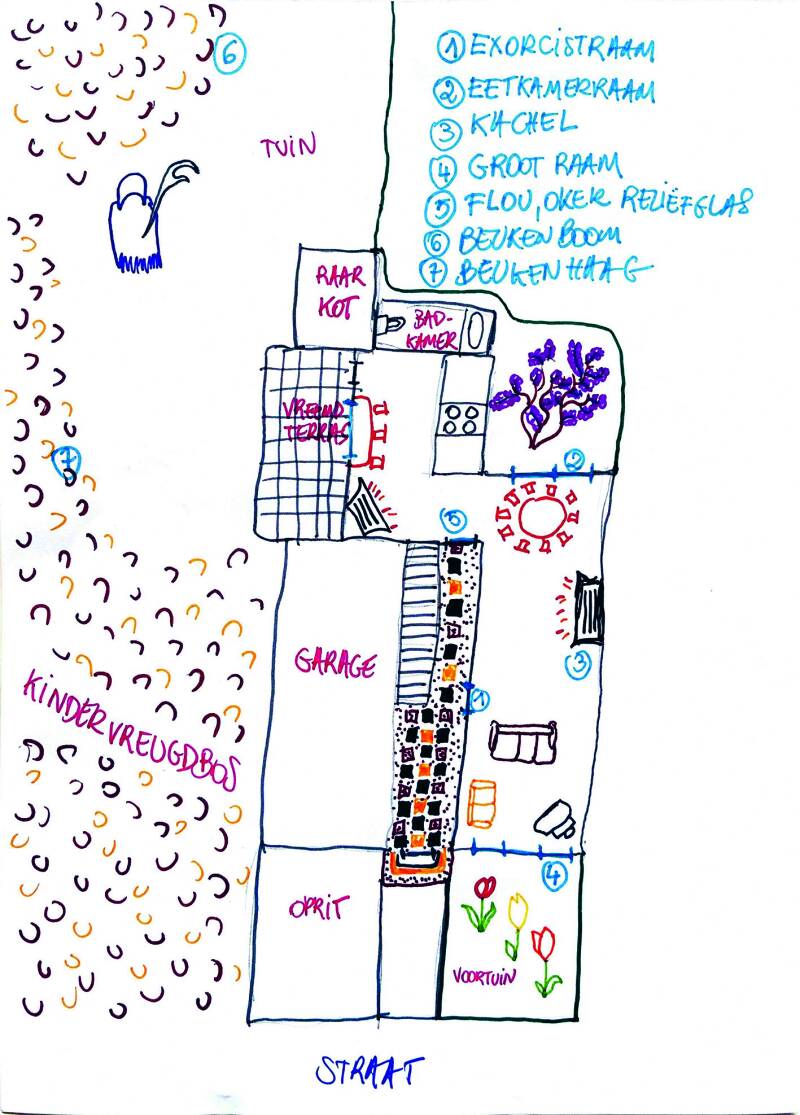 1 EXORCISTRAAM
2 EETKAMERRAAM
3 KACHEL
4 GROOT RAAM
5 FLOU, OKER RELIËFGLAS
6 BEUKENBOOM
7 BEUKENHAAG
6
TUIN
RAAR
KOT
BAD-
KAMER
VREEMD
TERRAS
2
7
5
GARAGE
3
KINDERVREUGDBOS
1
4
OPRIT
VOORTUIN
STRAAT